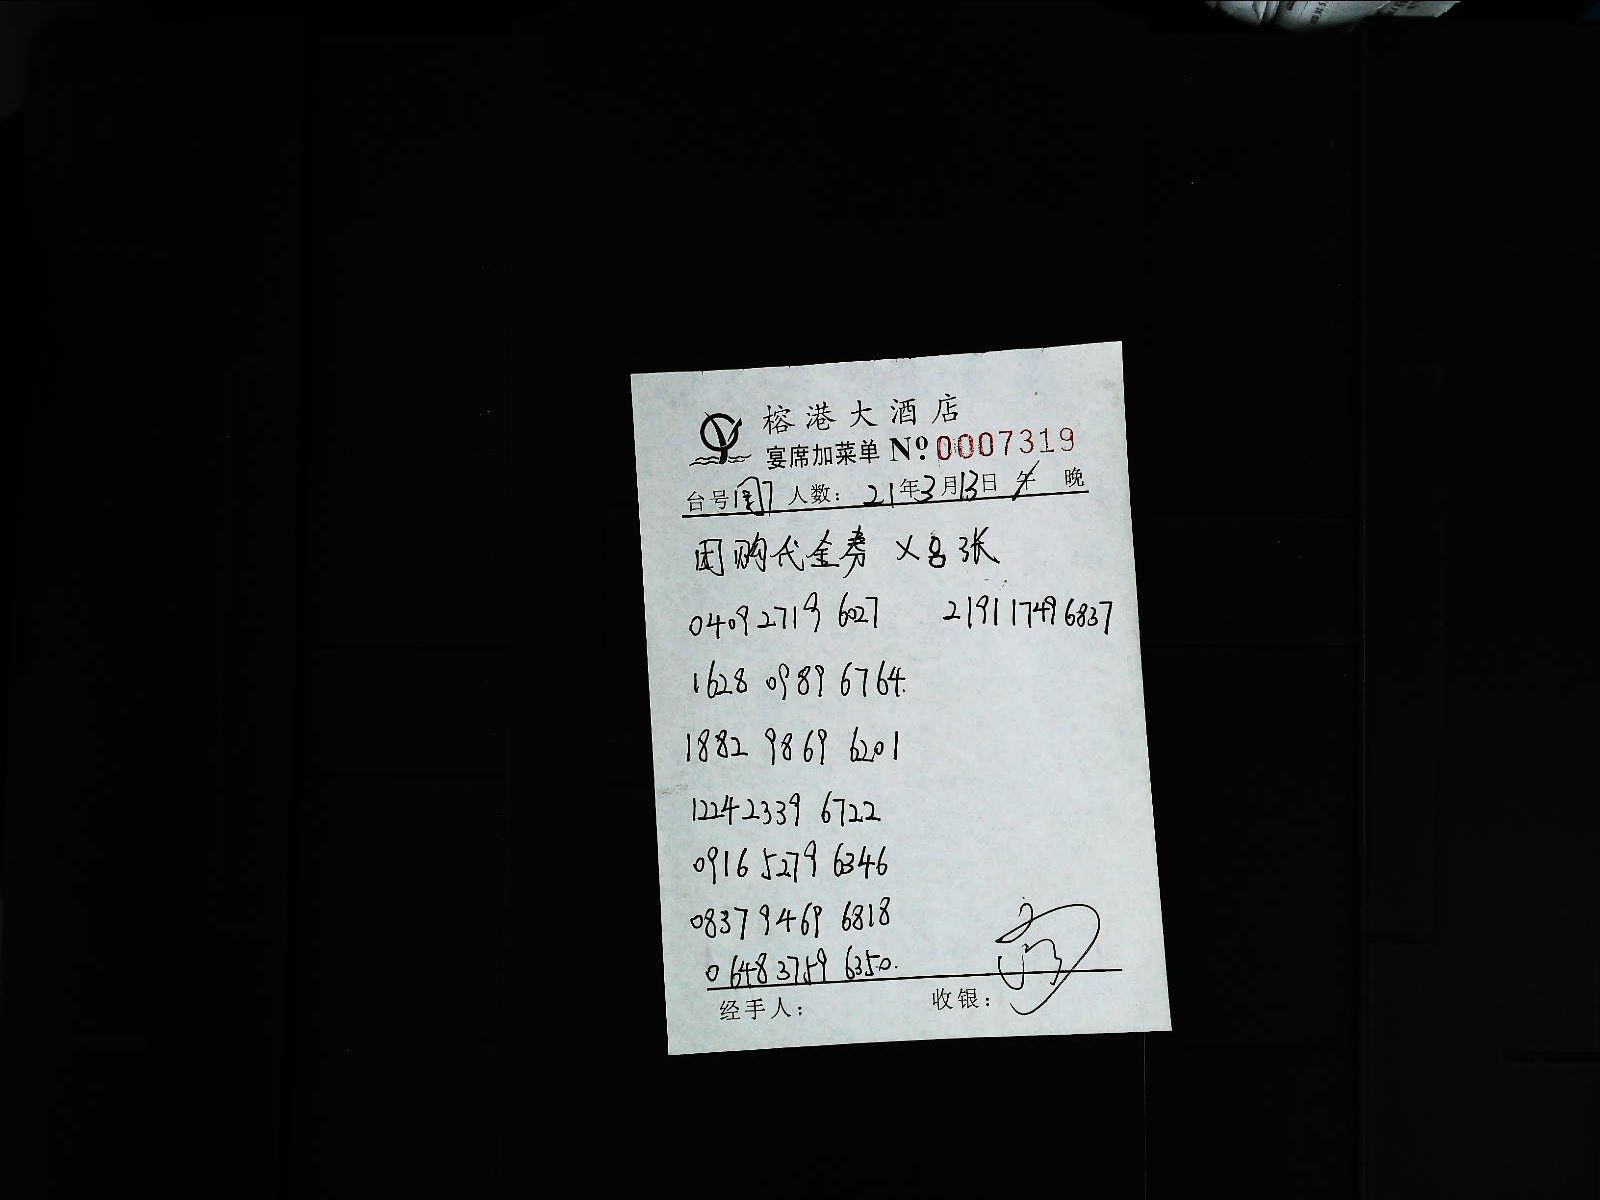 榕港大酒店
宴席加菜单 Nº 0007319
台号 人数： 21年3月13日 午 晚
团购代金券 ×8张
0409 2719 6027 2191 1749 6837
1628 0989 6764.
1882 9869 6201
1224 2339 6722
0916 5279 6346
0837 9469 6818
0648 3759 6350.
经手人： 收银：